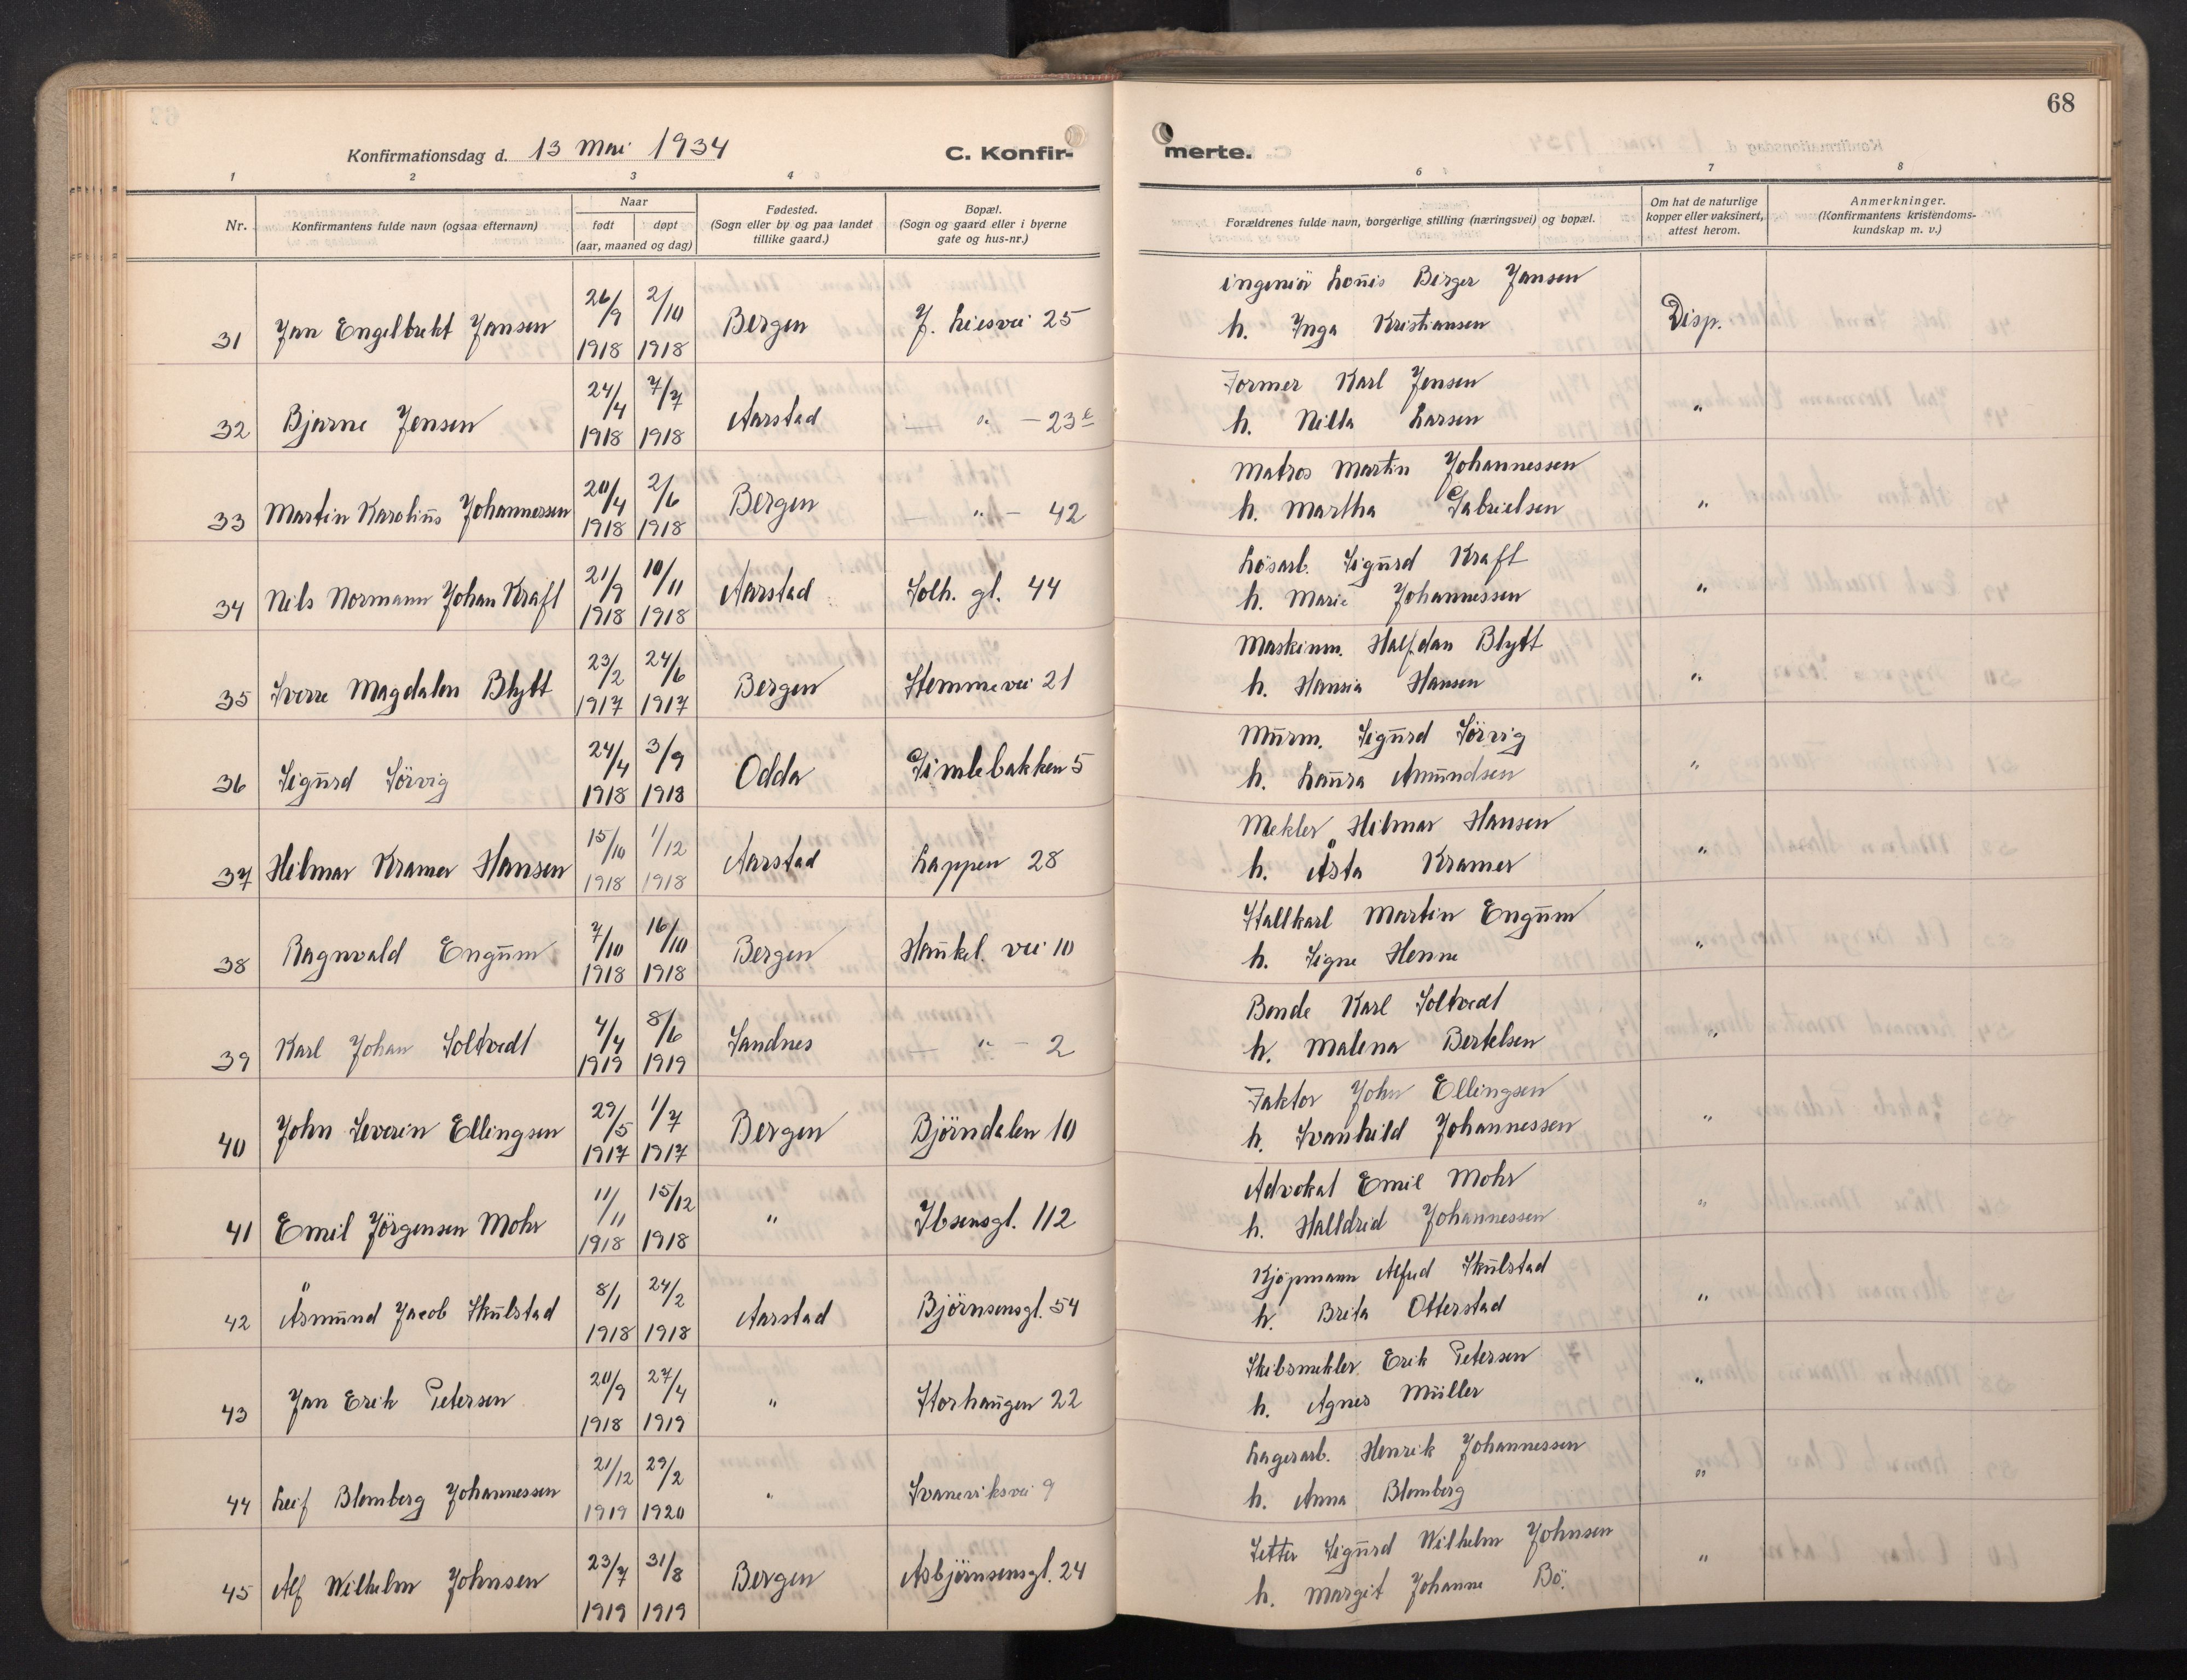 68
Konfirmationsdag d. 13 Mai 1934
C. Konfir-
merte.
1 2 3 4 6 7 8
Nr.
Konfirmantens fulde navn (ogsaa efternavn)
Naar
født døpt
(aar, maaned og dag)
Fødested.
(Sogn eller by og paa landet
tillike gaard.)
Bopæl.
(Sogn og gaard eller i byerne
gate og hus-nr.)
Forældrenes fulde navn, borgerlige stilling (næringsvei) og bopæl.
Om hat de naturlige
kopper eller vaksinert,
attest herom.
Anmerkninger.
(Konfirmantens kristendoms-
kundskap m. v.)
31 Jan Engelbrekt Jansen 26/9 1918 2/10 1918 Bergen J. Liesvei 25
ingeniör Louis Birger Jansen
h. Inga Kristiansen Disp.
32 Bjarne Jensen 24/4 1918 7/7 1918 Aarstad — " — 23
Former Karl Jensen
h. Nilla Larsen "
33 Martin Karolius Johannessen 20/4 1918 2/6 1918 Bergen — " — 42
Matros Martin Johannessen
h. Martha Gabrielsen "
34 Nils Normann Johan Kraft 21/9 1918 10/11 1918 Aarstad Solh. gt. 44
Lösarb. Sigurd Kraft
h. Marie Johannessen "
35 Sverre Magdalon Blytt 23/2 1917 24/6 1917 Bergen Stemmevei 21
Maskinm. Halfdan Blytt
h. Hansia Hansen "
36 Sigurd Sörvig 24/4 1918 3/9 1918 Odda Gimlebakken 5
Murm. Sigurd Sörvig
h. Laura Amundsen "
37 Hilmar Kramer Hansen 15/10 1918 1/12 1918 Aarstad Lappen 28
Mekler Hilmar Hansen
h. Åsta Kramer "
38 Ragnvald Engum 7/10 1918 16/10 1918 Bergen Haukel. vei 10
Stallkarl Martin Engum
h. Signe Henne "
39 Karl Johan Soltvedt 4/4 1919 8/6 1919 Sandnes — " — 2
Bonde Karl Soltvedt
h. Malena Bertelsen "
40 John Severin Ellingsen 29/5 1917 1/7 1917 Bergen Björndalen 10
Faktor John Ellingsen
h. Svanhild Johannessen "
41 Emil Jörgensen Mohr 11/11 1918 15/12 1918 " Ibsensgt. 112
Advokat Emil Mohr
h. Halldrid Johannessen "
42 Åsmund Jacob Skulstad 8/1 1918 24/2 1918 Aarstad Björnsensgt. 54
Kjöpmann Alfred Skulstad
h. Brita Otterstad "
43 Jan Erik Petersen 20/9 1918 27/4 1919 " Storhaugen 22
Skibsmekler Erik Petersen
h. Agnes Müller "
44 Leif Blomberg Johannessen 21/12 1919 29/2 1920 " Svaneviksvei 9
Lagerarb. Henrik Johannessen
h. Anna Blomberg "
45 Alf Wilhelm Johnsen 23/7 1919 31/8 1919 Bergen Asbjörnsensgt. 24
Setter Sigurd Wilhelm Johnsen
h. Margit Johanne Bö. "